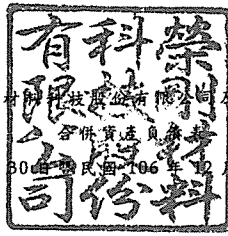 榮剛材料
科技股份
有限公司
材料科技股份有限公司及
合併資產負債表
30日暨民國 106 年 12 月